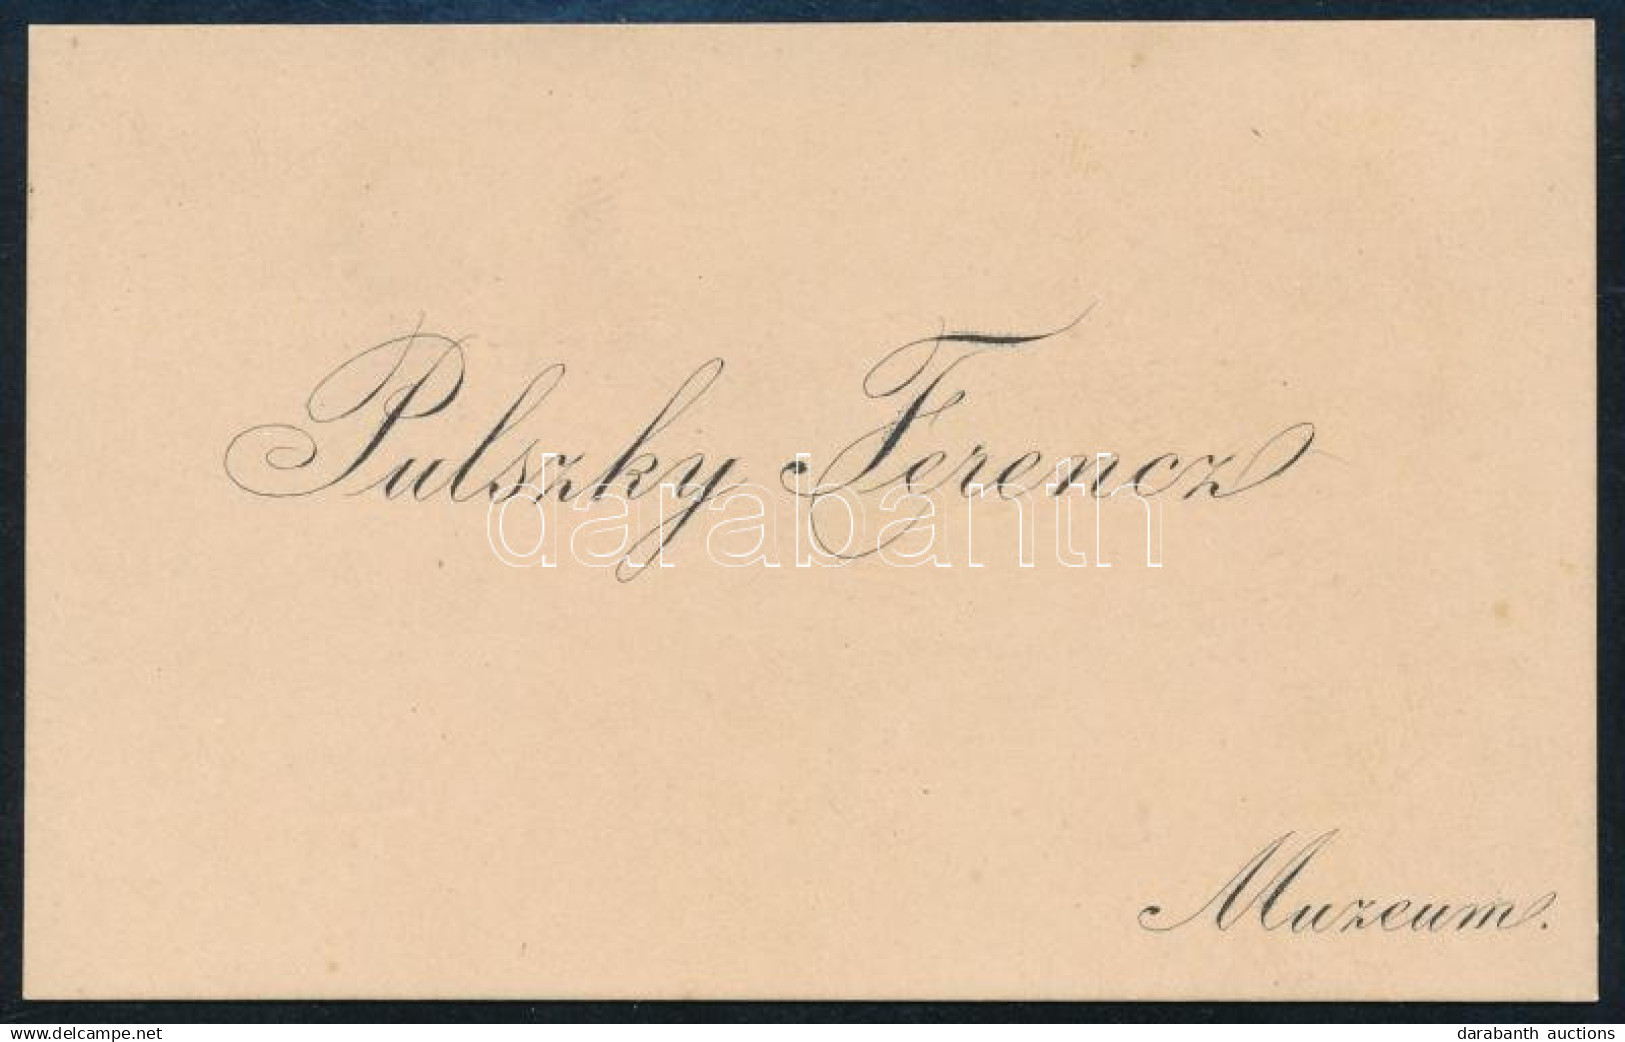 Pulszky Ferencz
darabanth
Muzeum.
www.delcampe.net
darabanth auctions